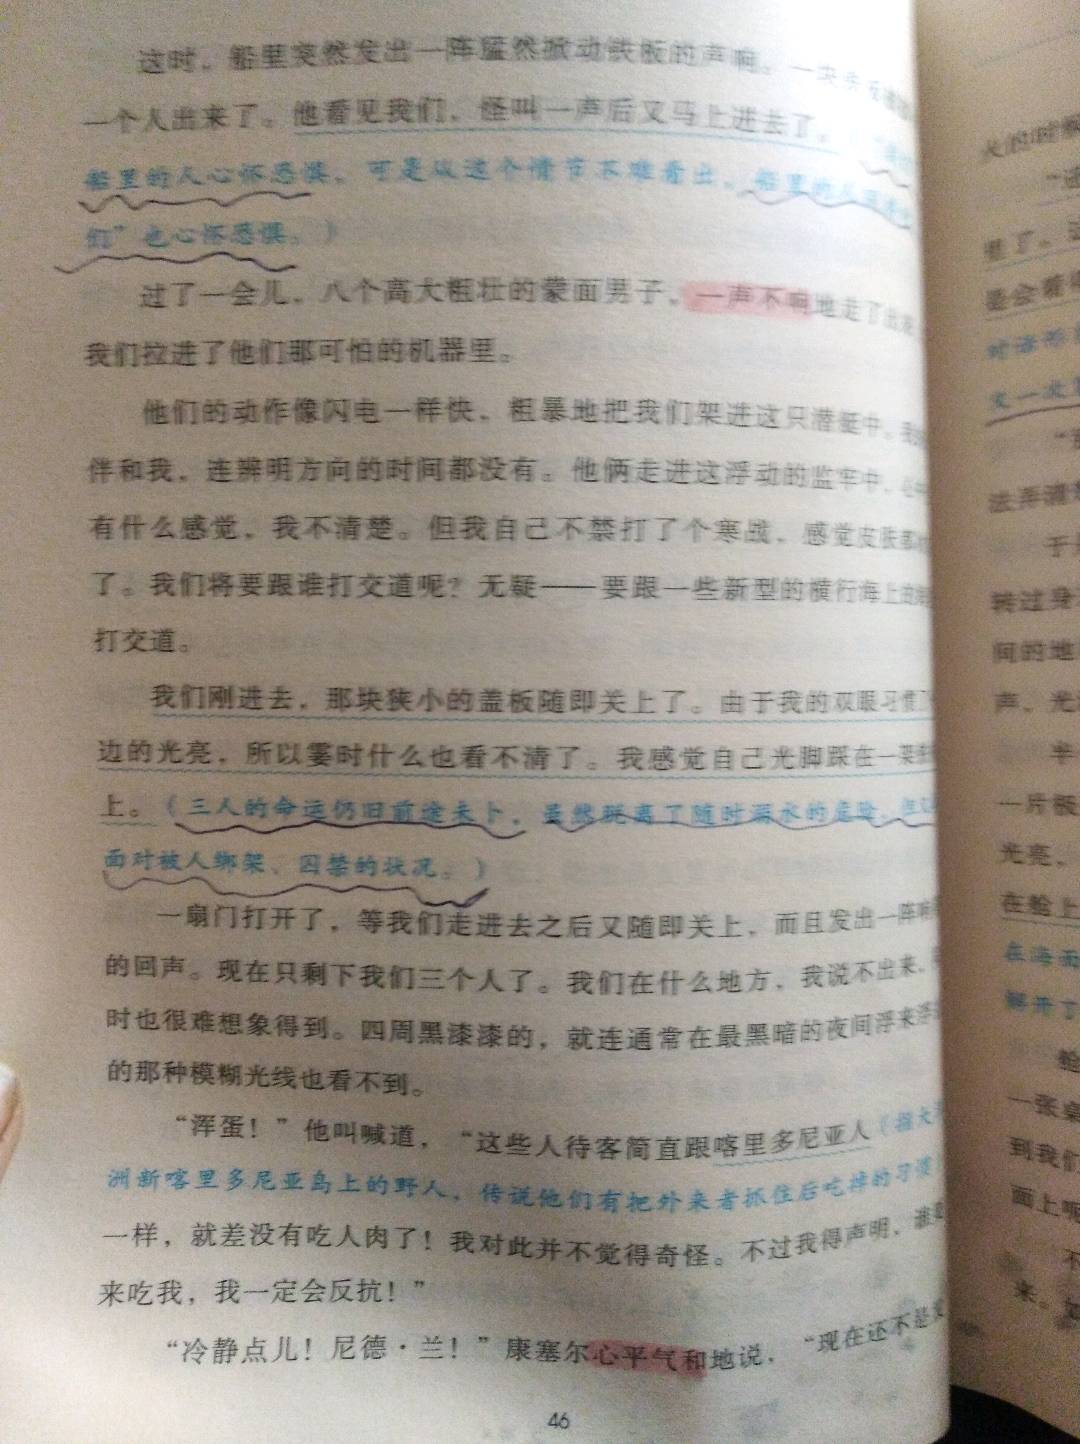 这时，船里突然发出一阵猛然掀动铁板的声响。一块
一个人出来了。他看见我们，怪叫一声后又马上进去了。
船里的人心怀恐惧，可是从这个情节不难看出，船里的人
们”也心怀恐惧。）
过了一会儿，八个高大粗壮的蒙面男子，一声不响地走了出来，
我们拉进了他们那可怕的机器里。
他们的动作像闪电一样快，粗暴地把我们架进这只潜艇中。
伴和我，连辨明方向的时间都没有。他俩走进这浮动的监牢中，
有什么感觉，我不清楚。但我自己不禁打了个寒战，感觉皮肤都
了。我们将要跟谁打交道呢？无疑——要跟一些新型的横行海上的
打交道。
我们刚进去，那块狭小的盖板随即关上了。由于我的双眼习惯了
边的光亮，所以霎时什么也看不清了。我感觉自己光脚踩在一架
上。（三人的命运仍旧前途未卜，虽然脱离了随时溺水的危险，但
面对被人绑架、囚禁的状况。）
一扇门打开了，等我们走进去之后又随即关上，而且发出一阵响
的回声。现在只剩下我们三个人了。我们在什么地方，我说不出来，
时也很难想象得到。四周黑漆漆的，就连通常在最黑暗的夜间浮来浮
的那种模糊光线也看不到。
“浑蛋！”他叫喊道，“这些人待客简直跟喀里多尼亚人（指大
洲新喀里多尼亚岛上的野人，传说他们有把外来者抓住后吃掉的习惯
一样，就差没有吃人肉了！我对此并不觉得奇怪。不过我得声明，谁
来吃我，我一定会反抗！”
“冷静点儿！尼德·兰！”康塞尔心平气和地说，“现在还不是
46
火的时候
里了。
是会看
对话形
又一次
法弄清
于
转过身
间的地
声，光
半
一片
光亮，
在舱上
在海面
解开了
舱
一张桌
到我们
面上呢
不
来。